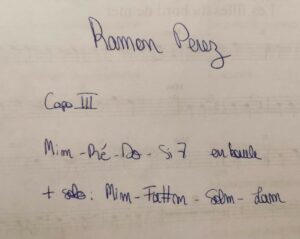 Ramon Perez
Capo III
Mim - Ré - Do - Si 7 en boucle
+ solo : Mim - Fa#m - Solm - Lam